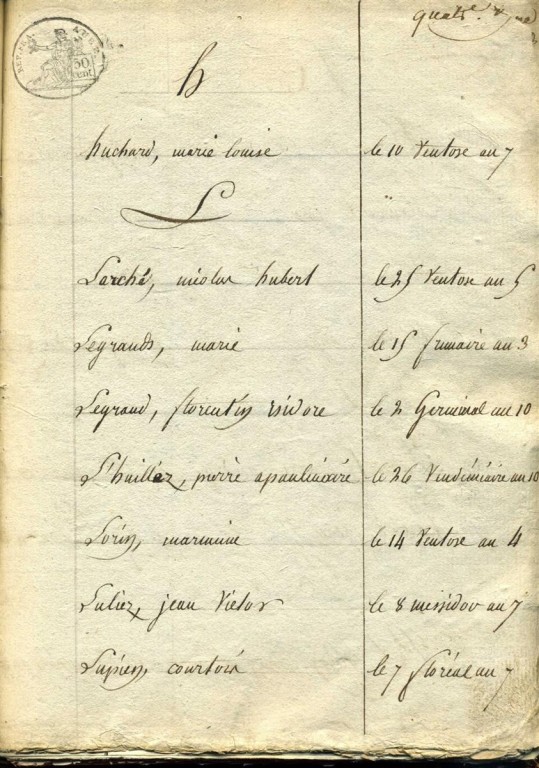 quatre
50
cent
h
huchard, marie louise le 10 Ventose an 7
L
Larché, nicolas hubert le 25 Ventose an 5
Legrands, marie le 15 frimaire an 3
Legrand, florentin isidore le 2 Germinal an 10
L'huillez, pierre apaulinaire le 26 Vendémiaire an 10
Lorin, le 14 Ventose an 4
Luliez, jean Victor le 8 messidor an 7
Lupien, courtois le 7 floréal an 7